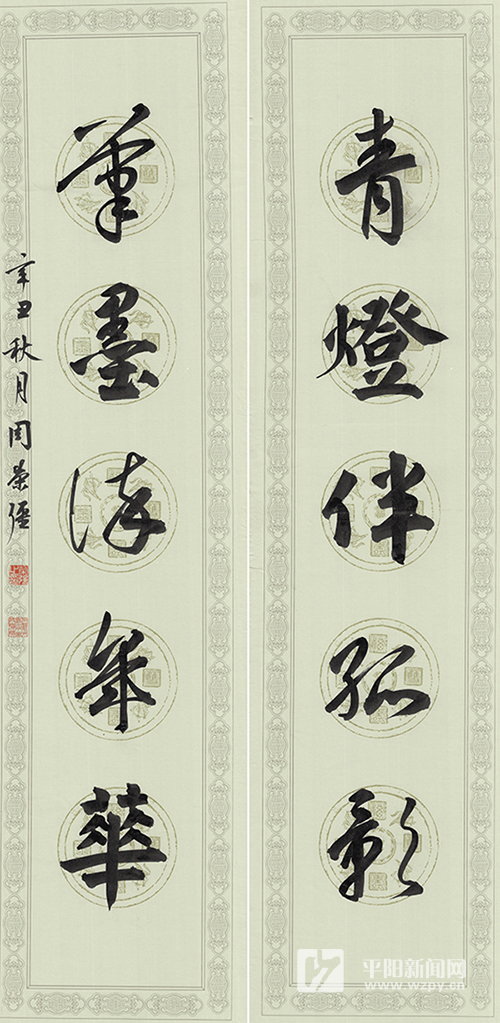 青燈伴孤影
筆墨年華
辛丑秋月周榮
平阳新闻网
www.wzpy.cn